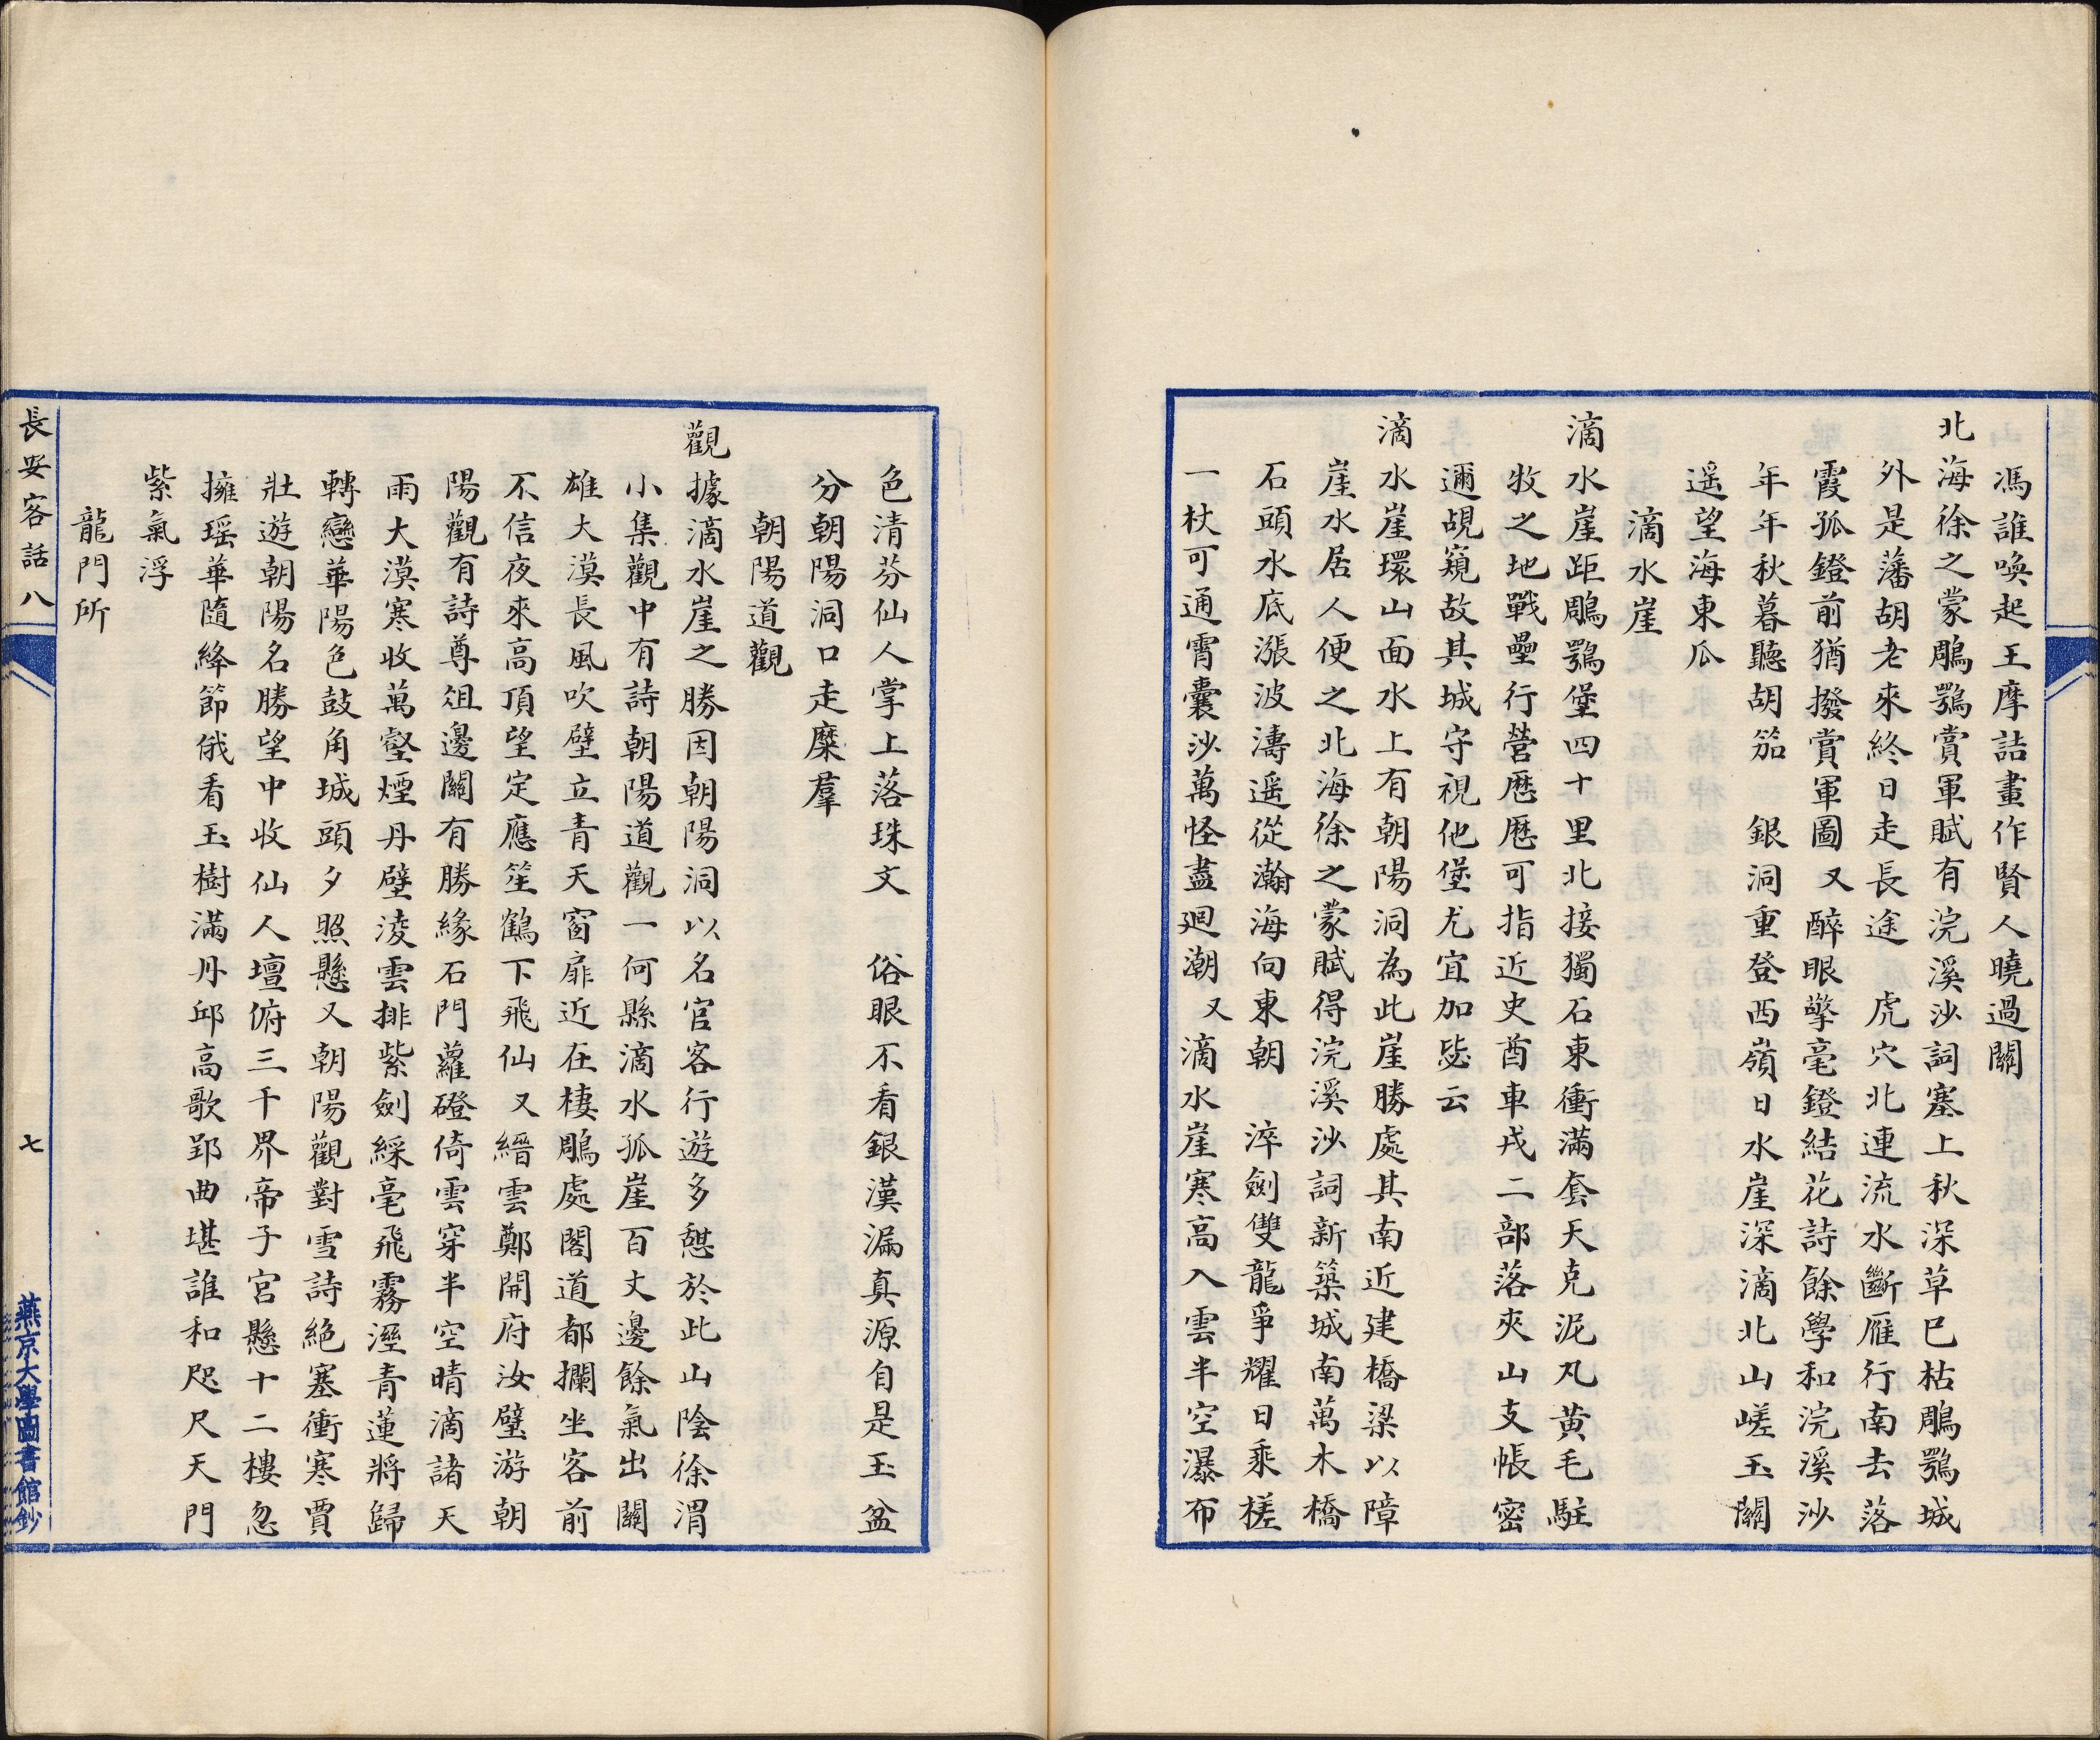 馮誰喚起王摩詰畫作賢人曉過關
北海徐之蒙鵰鶚賞軍賦有浣溪沙詞塞上秋深草已枯鵰鶚城
外是藩胡老來終日走長途　虎穴北連流水斷雁行南去落
霞孤鐙前猶撥賞軍圖又醉眼擎毫鐙結花詩餘學和浣溪沙
年年秋暮聽胡笳　銀洞重登西嶺日水崖深滴北山嵯玉關
遥望海東瓜
滴水崖
滴水崖距鵰鶚堡四十里北接獨石東衝滿套天克泥凡黄毛駐
牧之地戰壘行營歷歷可指近史酋車戎二部落夾山支帳密
邇覘窺故其城守視他堡尤宜加毖云
滴水崖環山面水上有朝陽洞為此崖勝處其南近建橋梁以障
崖水居人便之北海徐之蒙賦得浣溪沙詞新築城南萬木橋
石頭水底漲波濤遥從瀚海向東朝　淬劍雙龍爭耀日乘槎
一杖可通霄囊沙萬怪盡廻潮又滴水崖寒高入雲半空瀑布
色清芬仙人掌上落珠文　俗眼不看銀漢漏真源自是玉盆
分朝陽洞口走麋羣
朝陽道觀
觀據滴水崖之勝因朝陽洞以名官客行遊多憩於此山陰徐渭
小集觀中有詩朝陽道觀一何縣滴水孤崖百丈邊餘氣出關
雄大漠長風吹壁立青天窗扉近在棲鵰處閣道都攔坐客前
不信夜來高頂望定應笙鶴下飛仙又縉雲鄭開府汝璧游朝
陽觀有詩尊俎邊關有勝緣石門蘿磴倚雲穿半空晴滴諸天
雨大漠寒收萬壑煙丹壁淩雲排紫劍綵毫飛霧溼青蓮將歸
轉戀華陽色鼓角城頭夕照懸又朝陽觀對雪詩絶塞衝寒賈
壯遊朝陽名勝望中收仙人壇俯三千界帝子宮懸十二樓忽
擁瑶華隨絳節俄看玉樹滿丹邱高歌郢曲堪誰和咫尺天門
紫氣浮
龍門所
長安客話八
七
燕京大學圖書館鈔